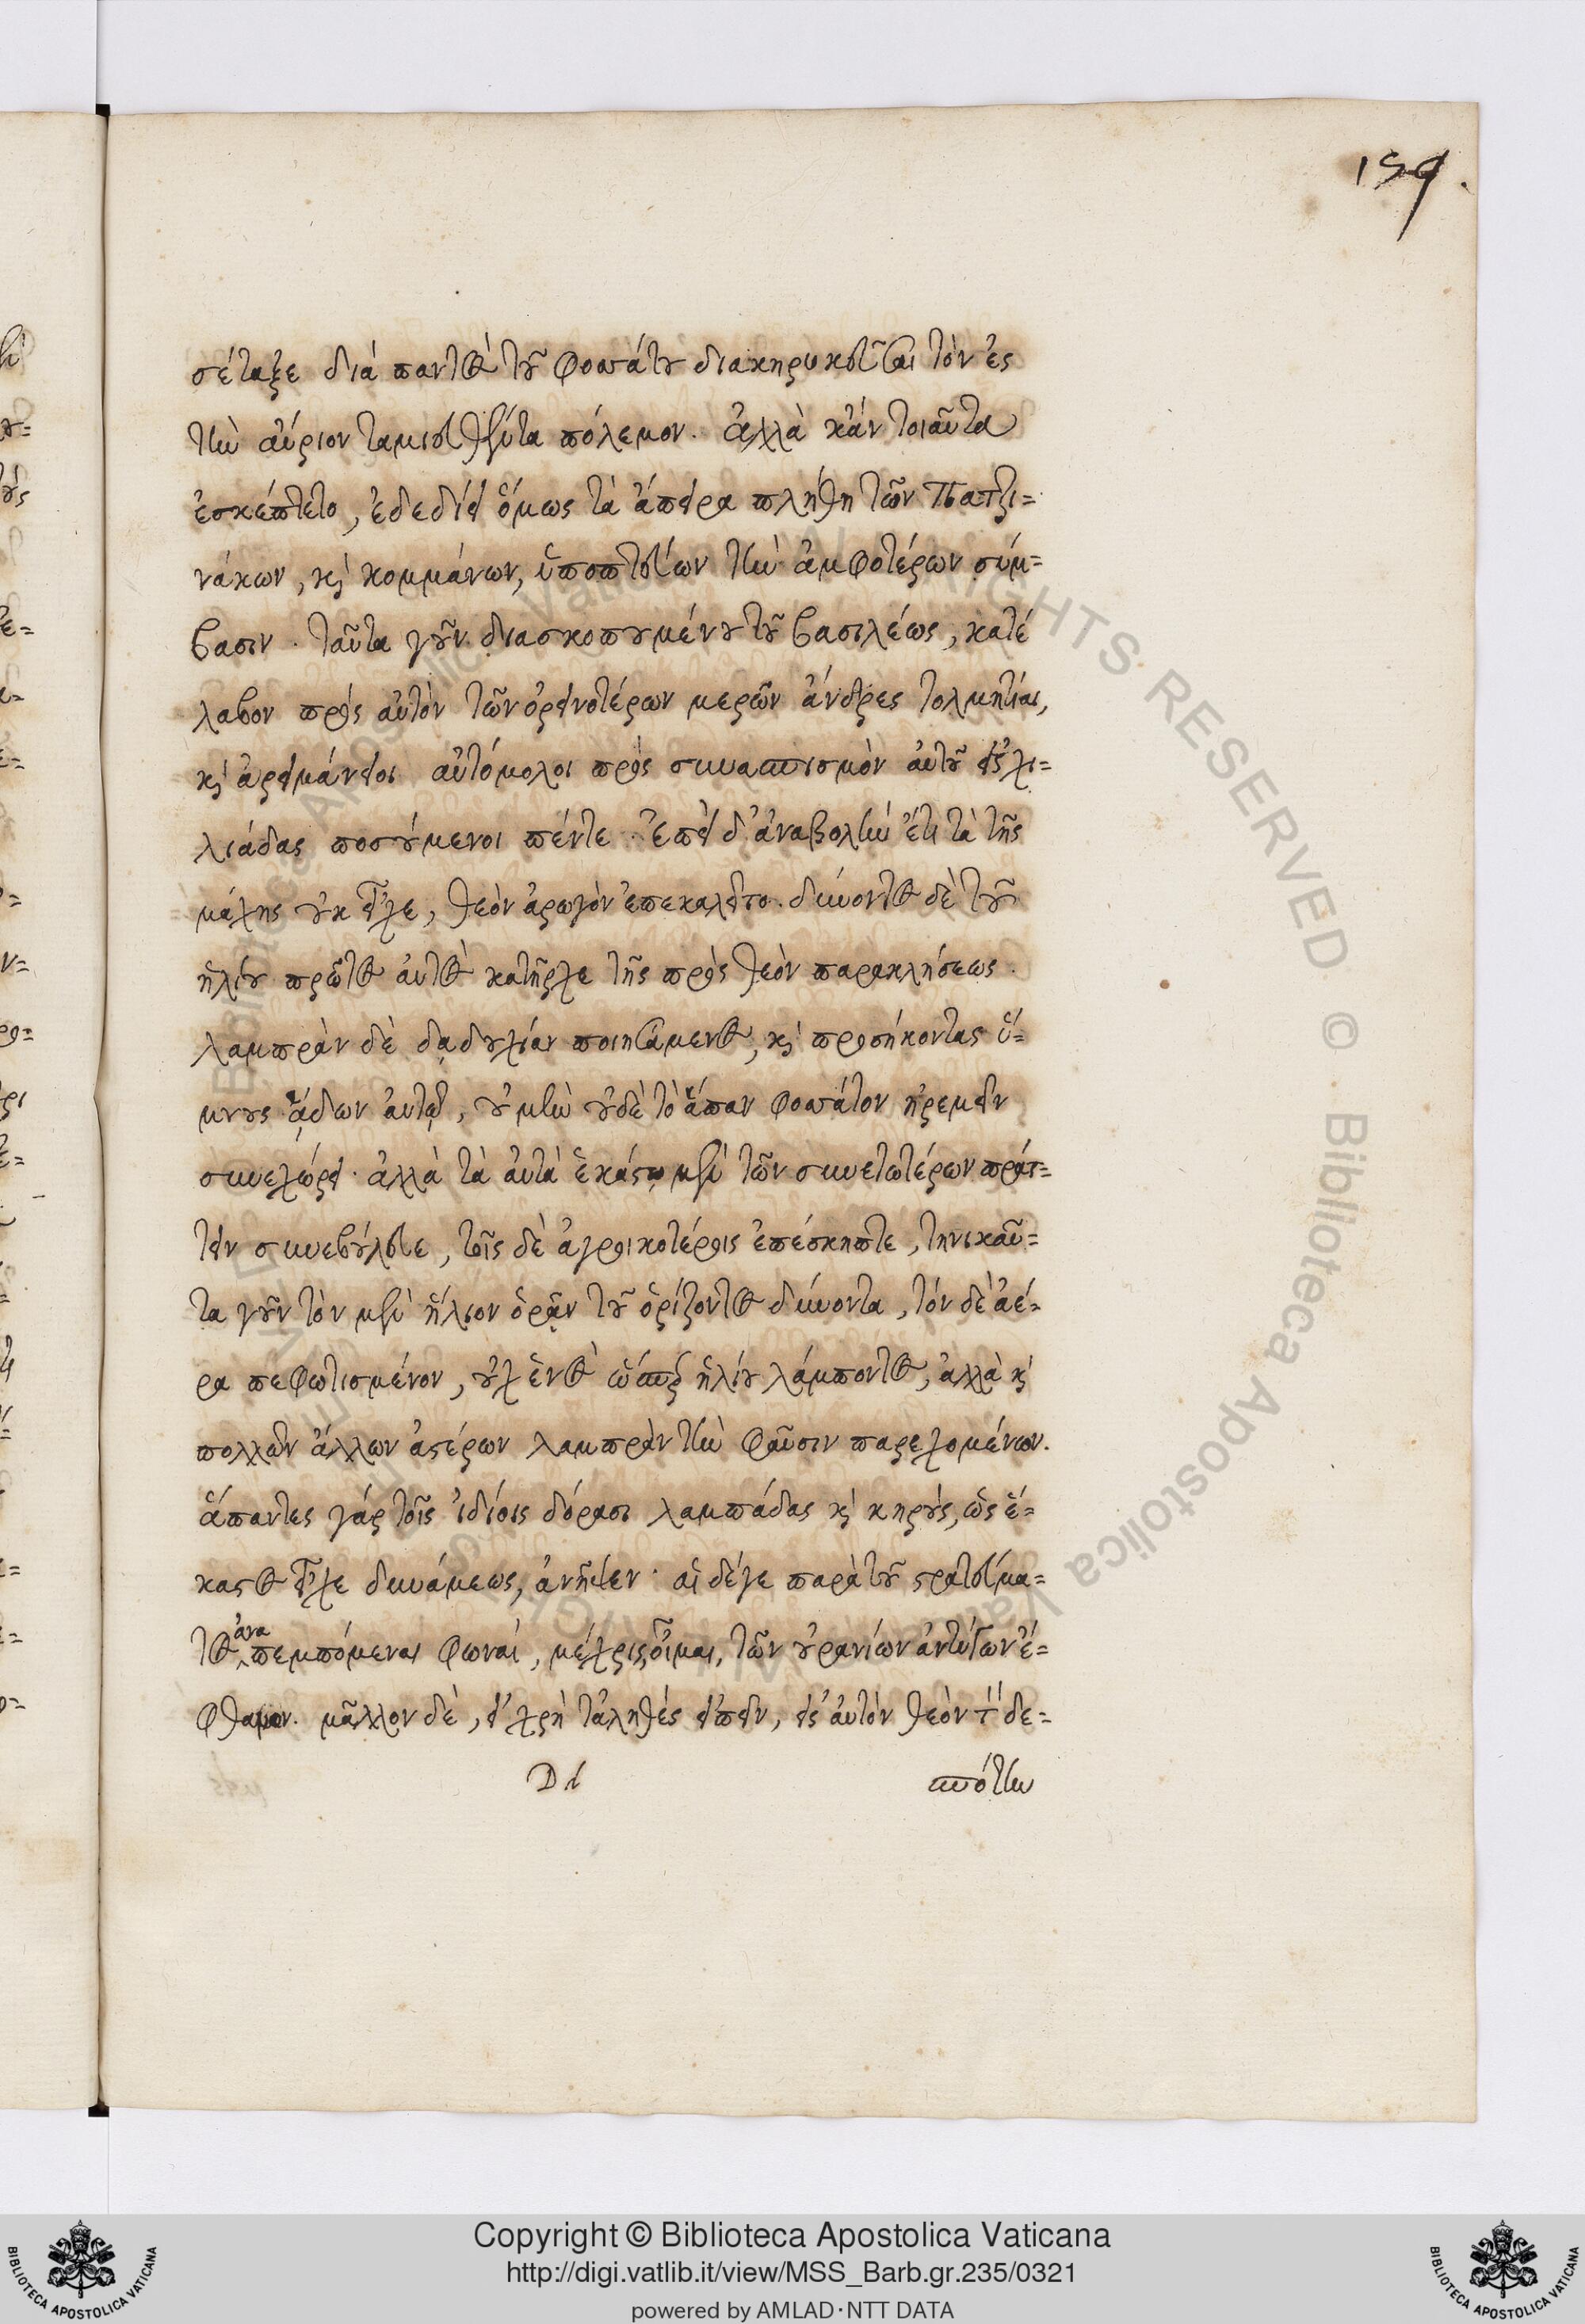 159.
σέταξε διά παντὸς τοῦ φοσάτου διακηρυκεῦσαι τὸν ἐς
τὴν αὔριον ταμιευθέντα πόλεμον. ἀλλὰ κἄν τοιαῦτα
ἐσκέπτετο, ἐδεδίει ὅμως τὰ ἄπειρα πλήθη τῶν Πατζι=
νάκων, καὶ κομμάνων, ὑποπτεύων τὴν ἀμφοτέρων σύμ=
βασιν. ταῦτα γοῦν διασκοπουμένου τοῦ βασιλέως, κατέ
λαβον πρὸς αὐτὸν τῶν ὀρεινοτέρων μερῶν ἄνδρες τολμητίαι,
καὶ ἀρειμάνειοι αὐτόμολοι πρὸς συνασπισμὸν αὐτοῦ εἰς χι=
λιάδας ποσούμενοι πέντε. Ἐπεὶ δ' ἀναβολὴν ἔτι τὰ τῆς
μάχης οὐκ εἶχε, θεὸν ἀρωγὸν ἐπεκαλεῖτο. δύνοντος δὲ τοῦ
ἡλίου πρῶτος αὐτὸς κατῆρχε τῆς πρὸς θεὸν παρακλήσεως.
λαμπρὰν δὲ δᾳδουχίαν ποιησάμενος, καὶ προσήκοντας ὕ=
μνους ᾄδων αὐτῷ, οὐ μὴν οὐδὲ τὸ ἅπαν φοσάτον ἠρεμεῖν
συνεχώρει. ἀλλὰ τὰ αὐτὰ ἑκάστῳ μὲν τῶν συνετωτέρων πράτ=
τειν συνεβούλευε, τοῖς δὲ ἀγροικοτέροις ἐπέσκηπτε, τηνικαῦ=
τα γοῦν τὸν μὲν ἥλιον ὁρᾷν τοῦ ὁρίζοντος δύνοντα, τόν δὲ ἀέ=
ρα πεφωτισμένον, οὐχ ἑνὸς ὥσπερ ἡλίου λάμποντος, ἀλλὰ καὶ
πολλῶν ἄλλων ἀστέρων λαμπρὰν τὴν φαῦσιν παρεχομένων.
ἅπαντες γάρ τοῖς ἰδίοις δόρασι λαμπάδας καὶ κηρούς, ὡς ἕ=
καστος εἶχε δυνάμεως, ἀνῆψεν. αἱ δέγε παρὰ τοῦ στρατεύμα=
τος ἀναπεμπόμεναι φωναί, μέχρις οἶμαι, τῶν οὐρανίων ἀντύγων ἔ=
φθανον. μᾶλλον δὲ, εἰ χρὴ τἀληθές εἰπεῖν, εἰς αὐτὸν θεὸν τὸν δε=
D d
σπότην
Copyright © Biblioteca Apostolica Vaticana
http://digi.vatlib.it/view/MSS_Barb.gr.235/0321
powered by AMLAD·NTT DATA